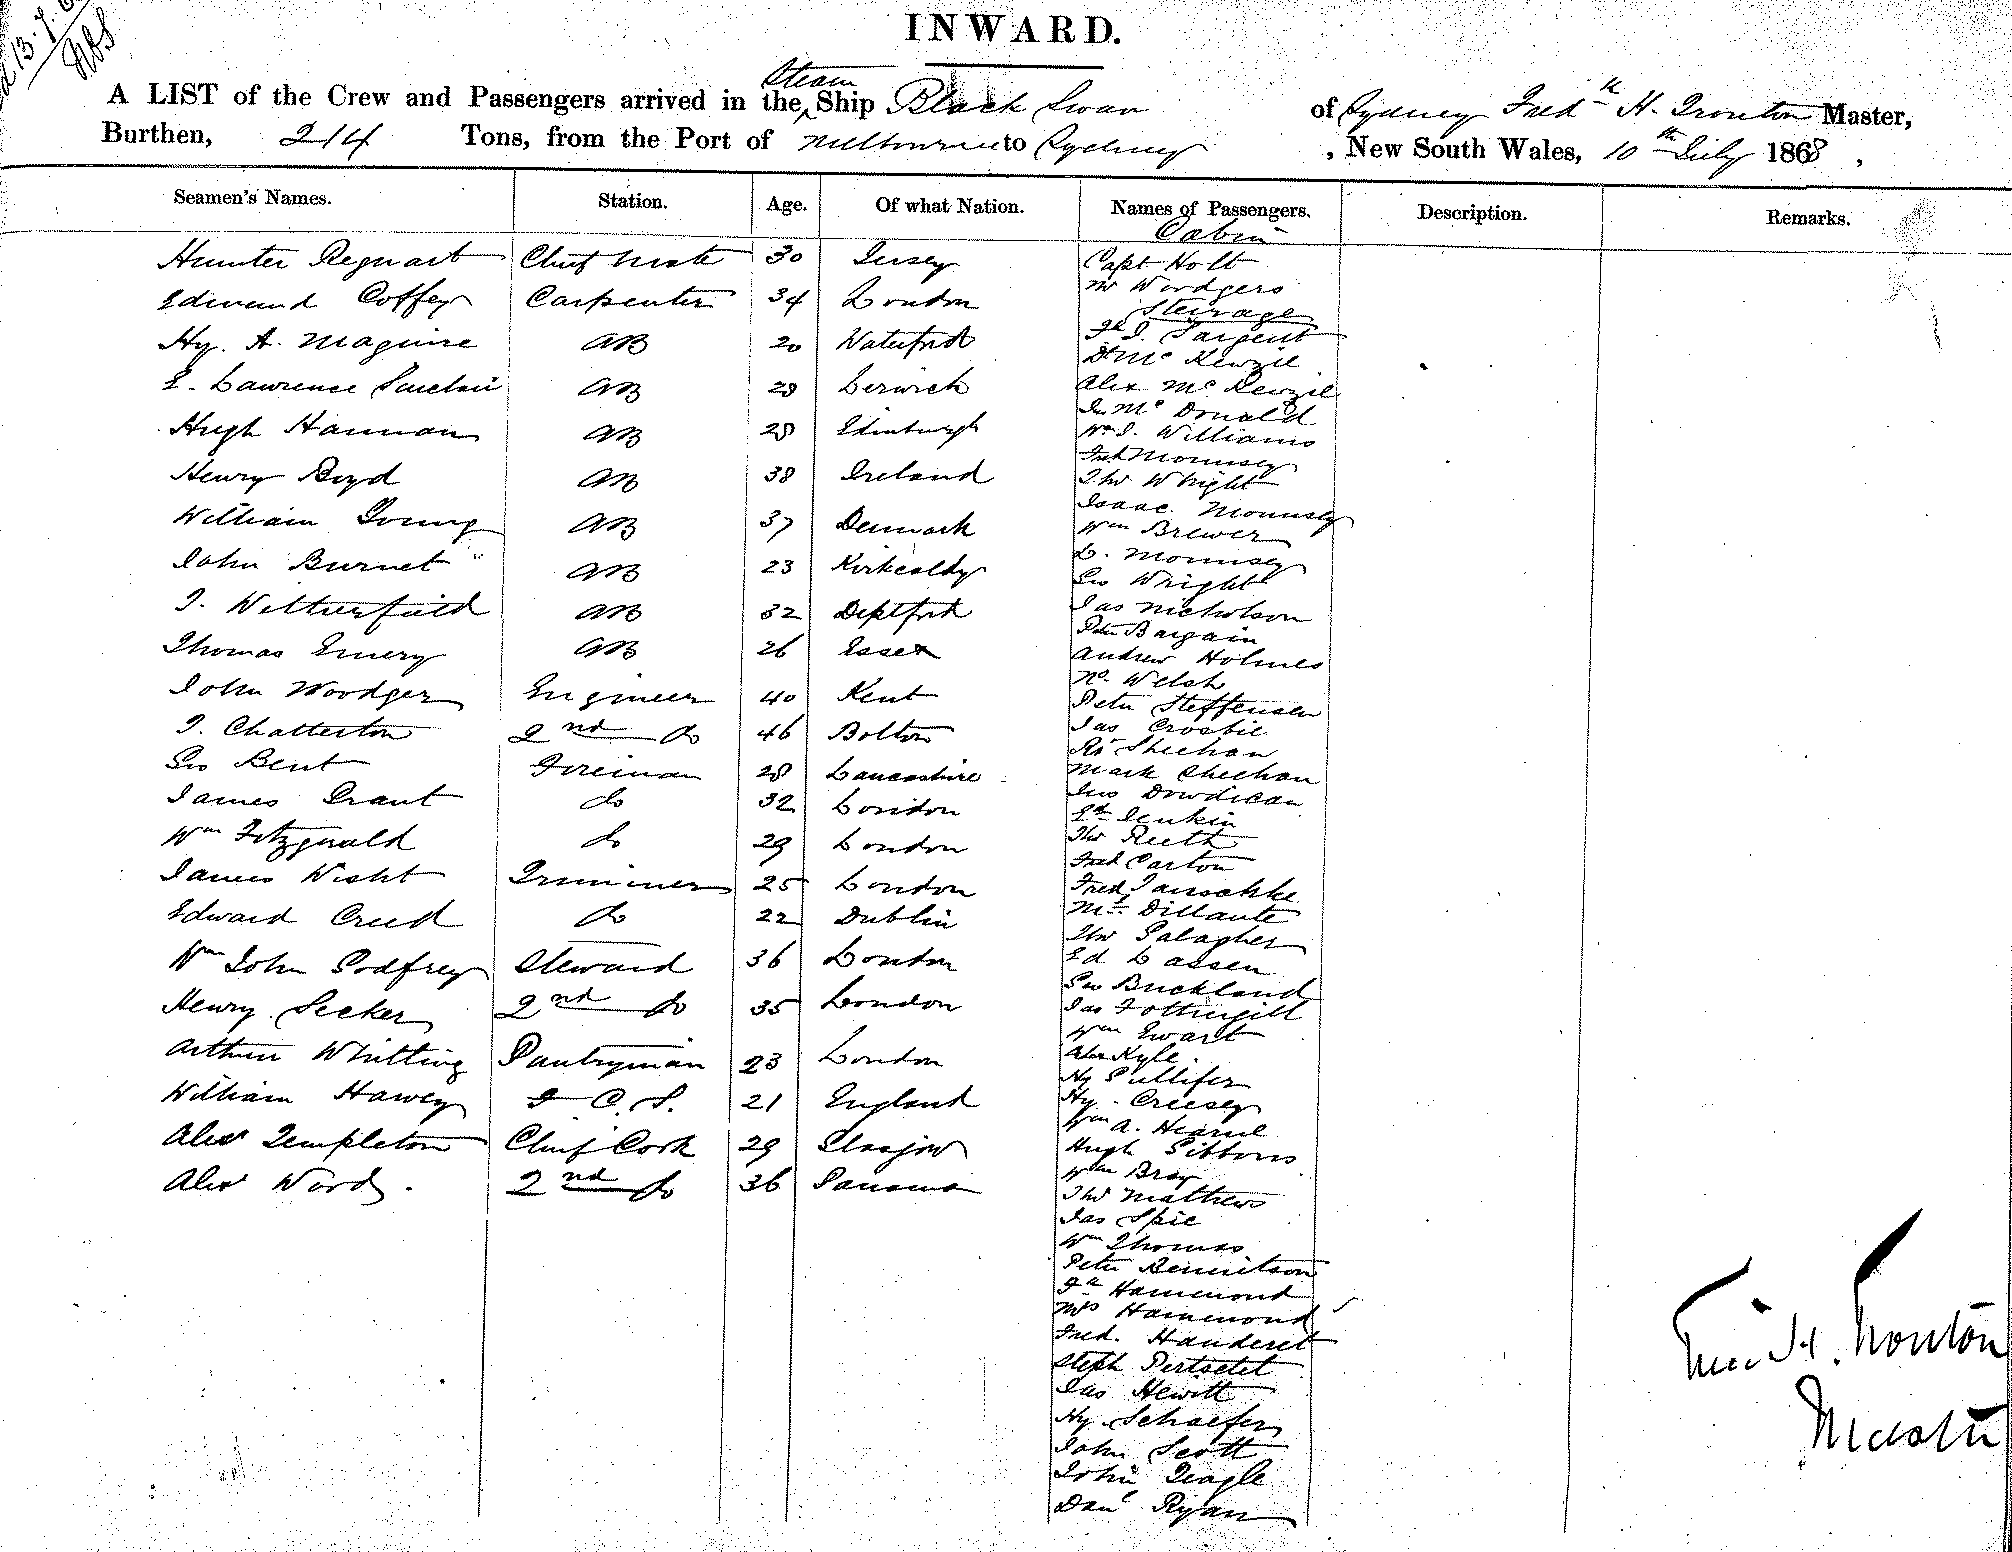 INWARD.
A LIST of the Crew and Passengers arrived in the Steam Ship Black Swan of Sydney Fredk H. Trouton Master,
Burthen, 214 Tons, from the Port of Melbourne to Sydney, New South Wales, 10th July 1868,
Seamen's Names. Station. Age. Of what Nation. Names of Passengers. Description. Remarks.
Hunter Regnart Chief Mate 30 Jersey
Edmund Coffey Carpenter 34 London
Hy. A. Maguire AB 20 Waterford
E. Lawrence Sinclair AB 28 Lerwick
Hugh Hannan AB 28 Edinburgh
Henry Boyd AB 38 Ireland
William Young AB 37 Denmark
John Burnet AB 23 Kirkcaldy
J. Witherfield AB 32 Deptford
Thomas Emery AB 26 Essex
John Woodger Engineer 40 Kent
J. Chatterton 2nd do 46 Bolton
Geo Bent Fireman 28 Lancashire
James Grant do 32 London
Wm Fitzgerald do 29 London
James Wisht Trimmer 25 London
Edward Creed do 22 Dublin
Wm John Godfrey Steward 36 London
Henry Secker 2nd do 35 London
Arthur Whitting Pantryman 23 London
William Hawey F C S. 21 England
Alex Templeton Chief Cook 29 Glasgow
Alex Ward. 2nd do 36 Panama
Cabin
Capt Holt
Mr Woodgers
Steirage
J. Sargent
Dd Mc Kenzie
Alex Mc Kenzie
Jn Mc Donald
Wm J. Williams
Fred Mounsey
Thos Wright
Isaac Mounsey
Wm Brewer
L. Mounsey
Geo Wright
Jas Nicholson
Peter Bargain
Andrew Holmes
Welsh
Peter Steffensen
Jas Crosbie
Rd Sheehan
Mark Sheehan
Jno Dowdican
Ed Jenkin
Thos Rueth
Fred Carton
Fred Janschke
Mt Dillante
Thos Galagher
Ed Lassen
Geo Buckland
Jas Fottingill
Wm Ewart
Alex Kyle.
Hy Pullifer
Hy. Creesey
Wm A. Hearne
Hugh Gibbons
Wm Bray
Thos Mathews
Jas Spie
Wm Thomas
Peter Bennitson
Hammond
Mrs Hammond
Fred. Handeret
Steph Pertsetet
Jas Hewitt
Hy Schaefer
John Scott
John Teagle
Danl Ryan
Fred H. Trouton
Master